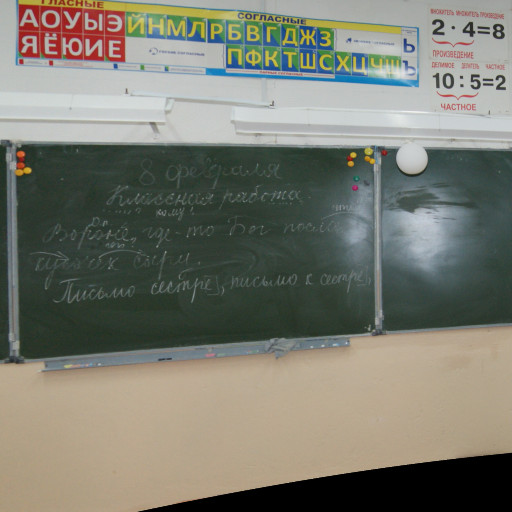 ГЛАСНЫЕ
СОГЛАСНЫЕ
АОУЫЭ
ЙНМЛРБВГДЖЗ
Ь
ЯЁЮИЕ
ПФКТШСХЦЧЩ
Ъ
МНОЖИТЕЛЬ МНОЖИТЕЛЬ ПРОИЗВЕДЕНИЕ
2 · 4=8
ПРОИЗВЕДЕНИЕ
ДЕЛИМОЕ ДЕЛИТЕЛЬ ЧАСТНОЕ
10:5=2
ЧАСТНОЕ
8 февраля
Классная работа.
кому?
Д.п.
Вороне где-то Бог посла
кусочек сыра.
Письмо сестре, письмо к сестре,